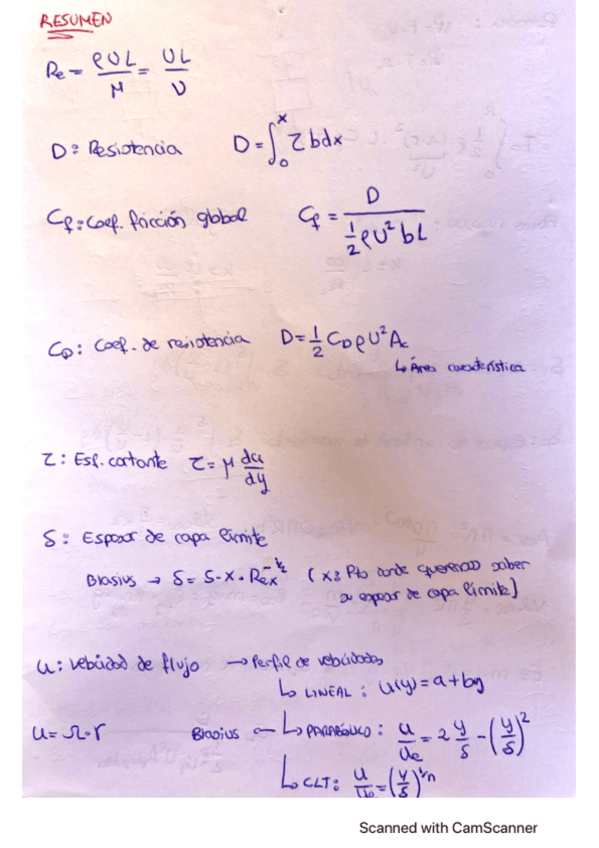 RESUMEN
Re = ρUL/μ = UL/ν
D: Resistencia D = ∫₀ˣ τ b dx
Cf: Coef. fricción global Cf = D / (1/2 ρU² bL)
CD: Coef. de resistencia D = 1/2 CD ρU² Ac
↳ Área característica
τ: Esf. cortante τ = μ du/dy
δ: Espesor de capa límite
Blasius → δ = 5·x·Rex^-1/2 (x: Pto donde queremos saber
espesor de capa límite)
u: velocidad de flujo → Perfil de velocidades
↳ LINEAL: u(y) = a + by
u = Ω·r Blasius ← ↳ PARABÓLICO: u/Ue = 2 y/δ - (y/δ)²
↳ CLT: u/U0 = (y/δ)^1/n
Scanned with CamScanner